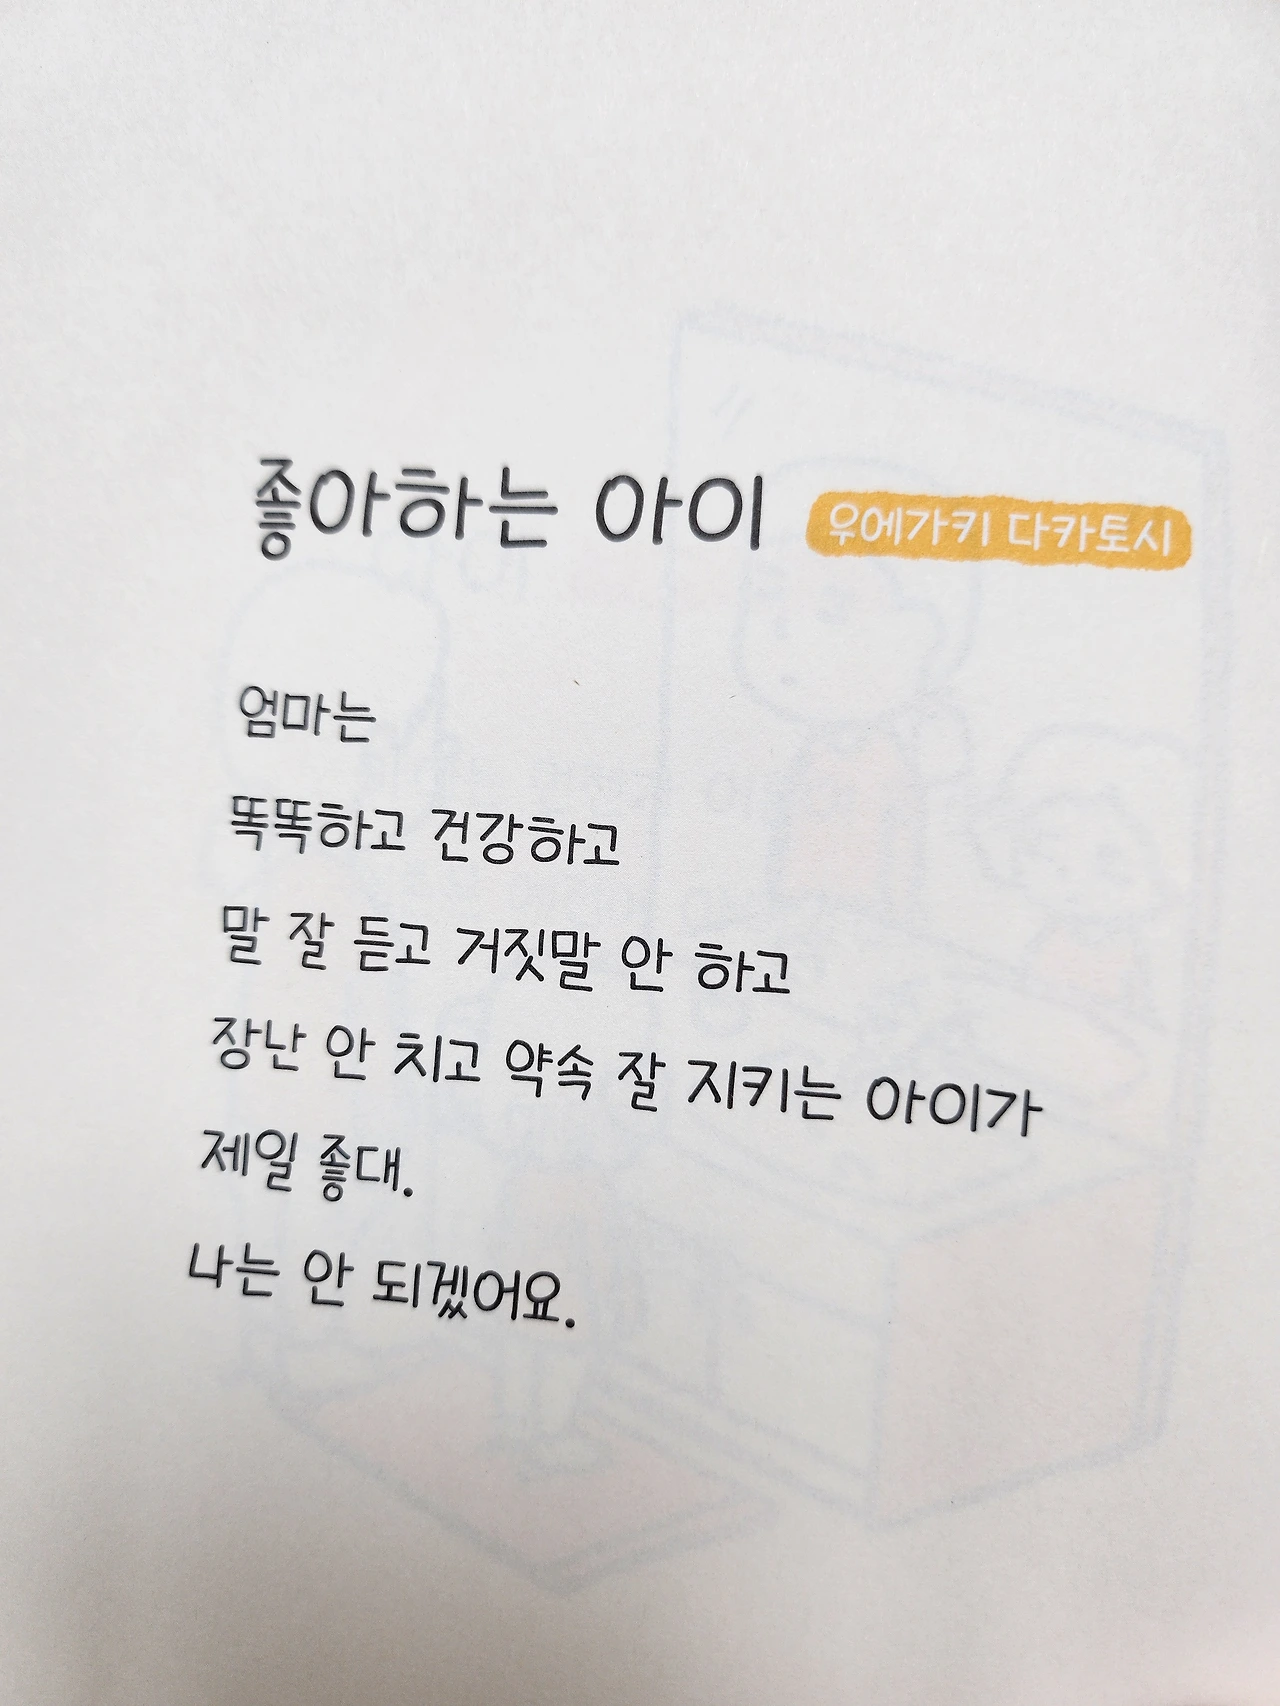 좋아하는 아이 우에가키 다카토시
엄마는
똑똑하고 건강하고
말 잘 듣고 거짓말 안 하고
장난 안 치고 약속 잘 지키는 아이가
제일 좋대.
나는 안 되겠어요.